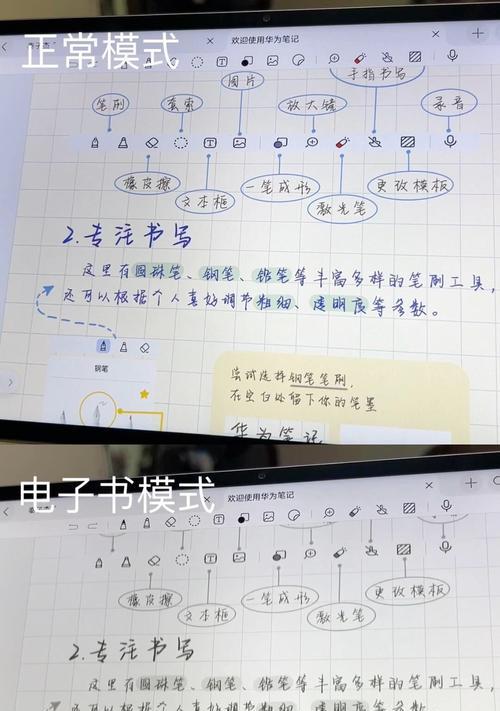 正常模式
欢迎使用华为笔记
图片
手指书写
笔刷
套索
放大镜
录音
橡皮擦
文本框
一笔成形
激光笔
更改模板
2.专注书写
这里有圆珠笔、钢笔、铅笔等丰富多样的笔刷工具，
还可以根据个人喜好调节粗细、透明度等参数。
钢笔
尝试选择钢笔笔刷，
在空白处留下你的笔墨
华为笔记
电子书模式
欢迎使用华为笔记
橡皮擦
文本框
一笔成形
激光笔
更改模板
2.专注书写
这里有圆珠笔、钢笔、铅笔等丰富多样的笔刷工具，
还可以根据个人喜好调节粗细、透明度等参数